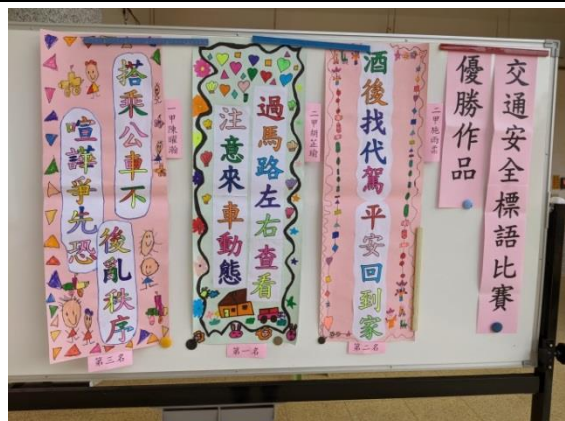 交通安全標語比賽
優勝作品
二甲施雨柔
酒後找代駕平安回到家
第二名
二甲胡芷瑜
過馬路左右查看
注意來車動態
第一名
一甲陳耀瀚
搭乘公車不
喧譁爭先恐
後亂秩序
第三名